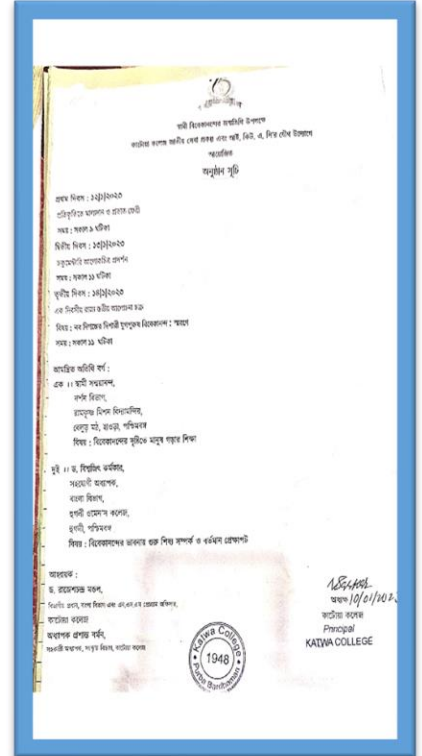 স্বামী বিবেকানন্দের জন্মতিথি উপলক্ষে
কাটোয়া কলেজ জাতীয় সেবা প্রকল্প এবং আই, কিউ, এ, সি'র যৌথ উদ্যোগে
আয়োজিত
অনুষ্ঠান সূচি
প্রথম দিবস : ১২/১/২০২৩
প্রতিকৃতিতে মাল্যদান ও প্রভাত ফেরী
সময় : সকাল ৯ ঘটিকা
দ্বিতীয় দিবস : ১৩/১/২০২৩
ডকুমেন্টারি আলোকচিত্র প্রদর্শন
সময় : সকাল ১১ ঘটিকা
তৃতীয় দিবস : ১৪/১/২০২৩
এক দিবসীয় রাজ্য স্তরীয় আলোচনা চক্র
বিষয় : নব দিগন্তের দিশারী যুগপুরুষ বিবেকানন্দ : স্মরণে
সময় : সকাল ১১ ঘটিকা
আমন্ত্রিত অতিথি বর্গ :
এক ।। স্বামী
দর্শন বিভাগ,
রামকৃষ্ণ মিশন বিদ্যামন্দির,
বেলুড় মঠ, হাওড়া, পশ্চিমবঙ্গ
বিষয় : বিবেকানন্দের দৃষ্টিতে মানুষ গড়ার শিক্ষা
দুই ।। ড. বিশ্বজিৎ কর্মকার,
সহযোগী অধ্যাপক,
বাংলা বিভাগ,
হুগলী ওমেন'স কলেজ,
হুগলী, পশ্চিমবঙ্গ
বিষয় : বিবেকানন্দের ভাবনায় গুরু শিষ্য সম্পর্ক ও বর্তমান প্রেক্ষাপট
আহ্বায়ক :
ড. রাজেশচন্দ্র মণ্ডল,
বিভাগীয় প্রধান, বাংলা বিভাগ এবং এন,এস,এস প্রোগ্রাম অফিসার,
কাটোয়া কলেজ
অধ্যাপক প্রশান্ত বর্মন,
সহকারী অধ্যাপক, সংস্কৃত বিভাগ, কাটোয়া কলেজ
অধ্যক্ষ 10/01/202
কাটোয়া কলেজ
Principal
KATWA COLLEGE
Katwa College
1948
Purba Bardhaman